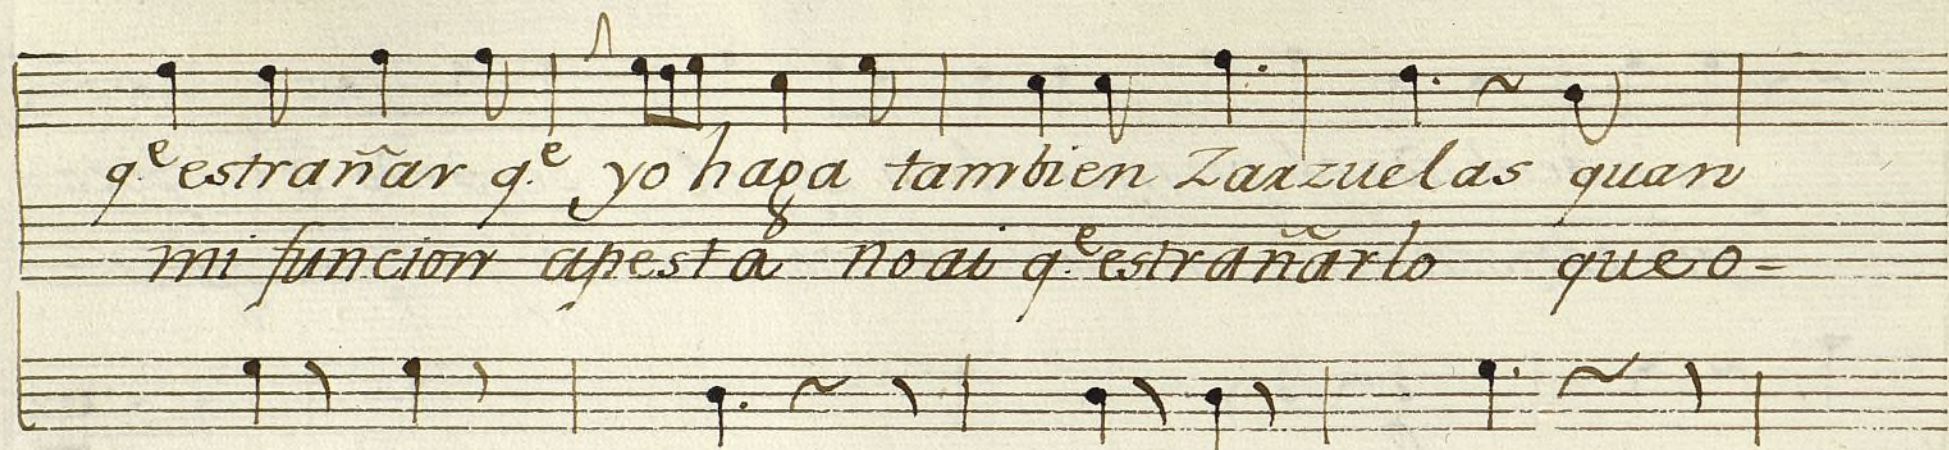 q.e estrañar q.e yo haga tambien Zarzuelas quan
mi funcion apesta no ai q.e estrañarlo que o-